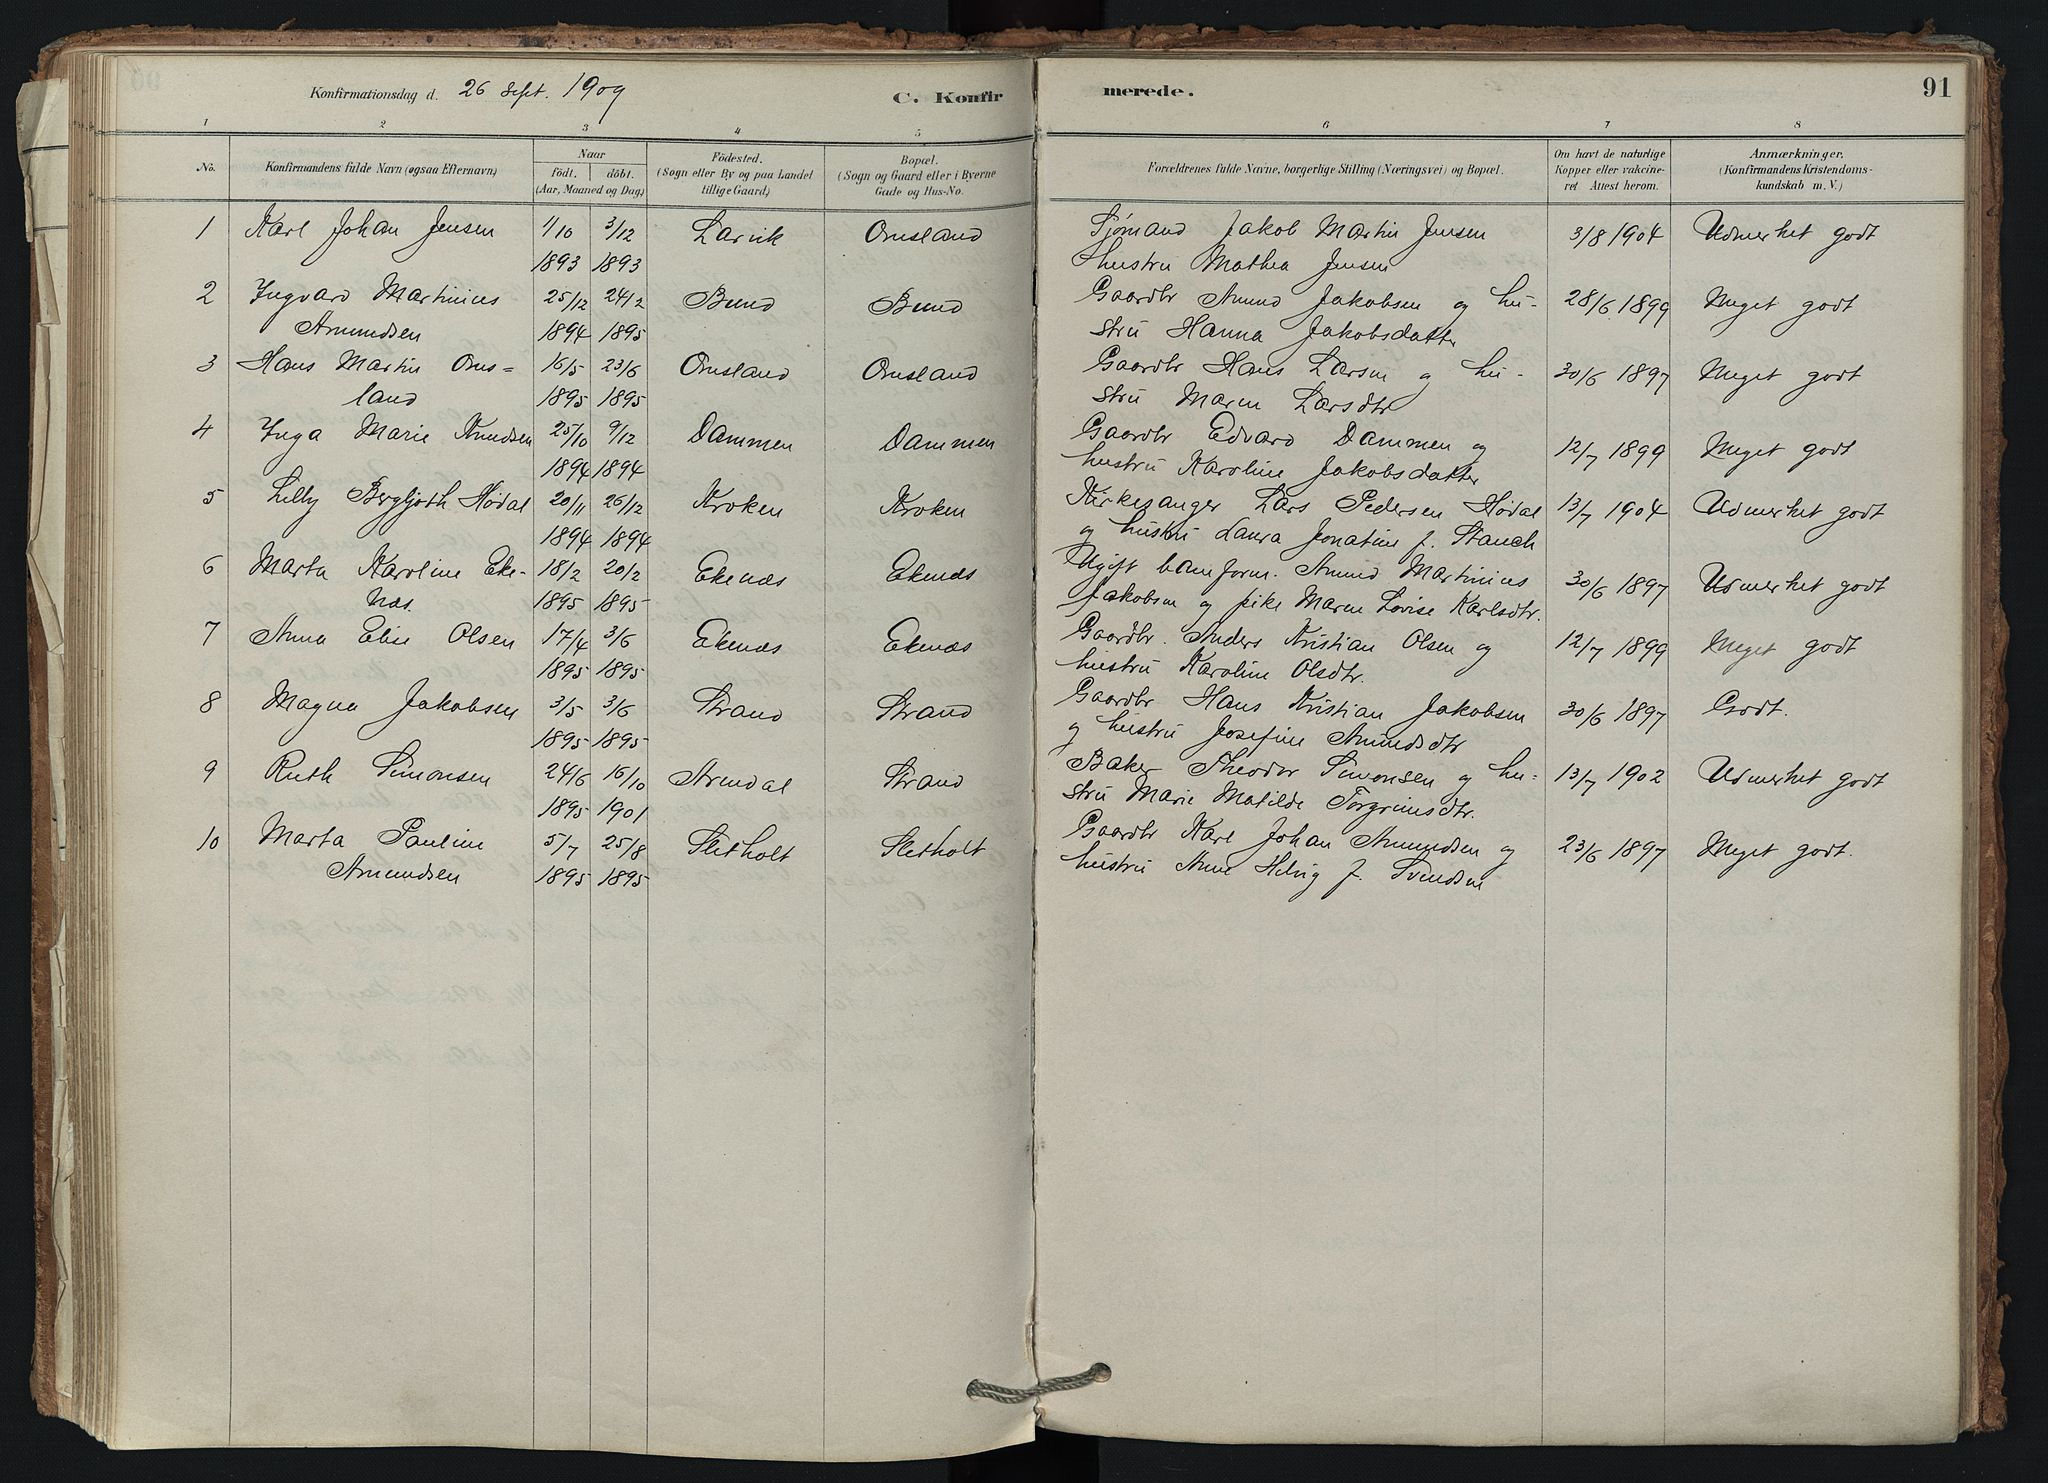 Konfirmationsdag d. 26 Sept. 1909 C. Konfirmerede. 91
1 2 3 4 5 6 7 8
No. Konfirmandens fulde Navn (ogsaa Efternavn) Naar Födt. döbt. (Aar, Maaned og Dag) Födested. (Sogn eller By og paa Landet tillige Gaard) Bopæl. (Sogn og Gaard eller i Byerne Gade og Hus-No. Forældrenes fulde Navne, borgerlige Stilling (Næringsvei) og Bopæl. Om havt de naturlige Kopper eller vakcineret. Attest herom. Anmærkninger. (Konfirmandens Kristendomskundskab m. V.)
1 Karl Johan Jensen 1/10 3/12 Larvik Omsland Sjømand Jakob Martin Jensen 3/8 1904 Udmerket godt
1893 1893 hustru Mathea Jensen
2 Ingvard Martinius 25/12 24/2 Bund Bund Gaardbr Amund Jakobsen og hu- 28/6 1899 Meget godt
Amundsen 1894 1895 stru Hanna Jakobsdatter
3 Hans Martin Oms= 16/5 23/6 Omsland Omsland Gaardbr Hans Larsen og hu- 30/6 1897 Meget godt
land 1895 1895 stru Maren Larsdtr
4 Inga Marie Knudsen 25/10 9/12 Dammen Dammen Gaardbr Edvard Dammen og 12/7 1899 Meget godt
1894 1894 hustru Karoline Jakobsdatter
5 Lilly Bergljoth Hødal 20/11 26/12 Kroken Kroken Kirkesanger Lars Pedersen Hødal 13/7 1904 Udmerket godt
1894 1894 og hustru Laura Jonatine f. Stauch
6 Marta Karoline Eke- 18/2 20/2 Ekenæs Ekenæs Ugift Amund Martinius 30/6 1897 Udmerket godt
næs. 1895 1895 Jakobsen og pike Maren Lovise Karlsdtr.
7 Anna Elise Olsen 17/4 3/6 Ekenæs Ekenæs Gaardbr. Anders Kristian Olsen og 12/7 1899 Meget godt
1895 1895 hustru Karoline Olsdtr.
8 Magna Jakobsen 3/5 3/6 Strand Strand Gaardbr Hans Kristian Jakobsen 30/6 1897 Godt.
1895 1895 og hustru Josefine Amundsdtr
9 Ruth Simonsen 24/6 16/10 Arendal Strand Baker Theodor Simonsen og hu- 13/7 1902 Udmerket godt
1895 1901 stru Marie Matilde Torgrimsdtr.
10 Marta Pauline 5/7 25/8 Sletholt Sletholt Gaardbr Karl Johan Amundsen og 23/6 1897 Meget godt.
Amundsen 1895 1895 hustru Anne Helvig f. Svendsen